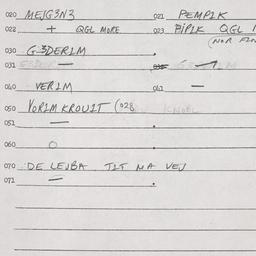 020 MEJG3N3 021 PEMPIK
022 + QGL MORE 023 PIPIK QGL
(NOR FIN
030 G3DERIM
031 —
040 VERIM 041 —
050 VORIM KROUIT (028
051 —
060 O
070 DE LEJBA TIT MA VEJ
071 —